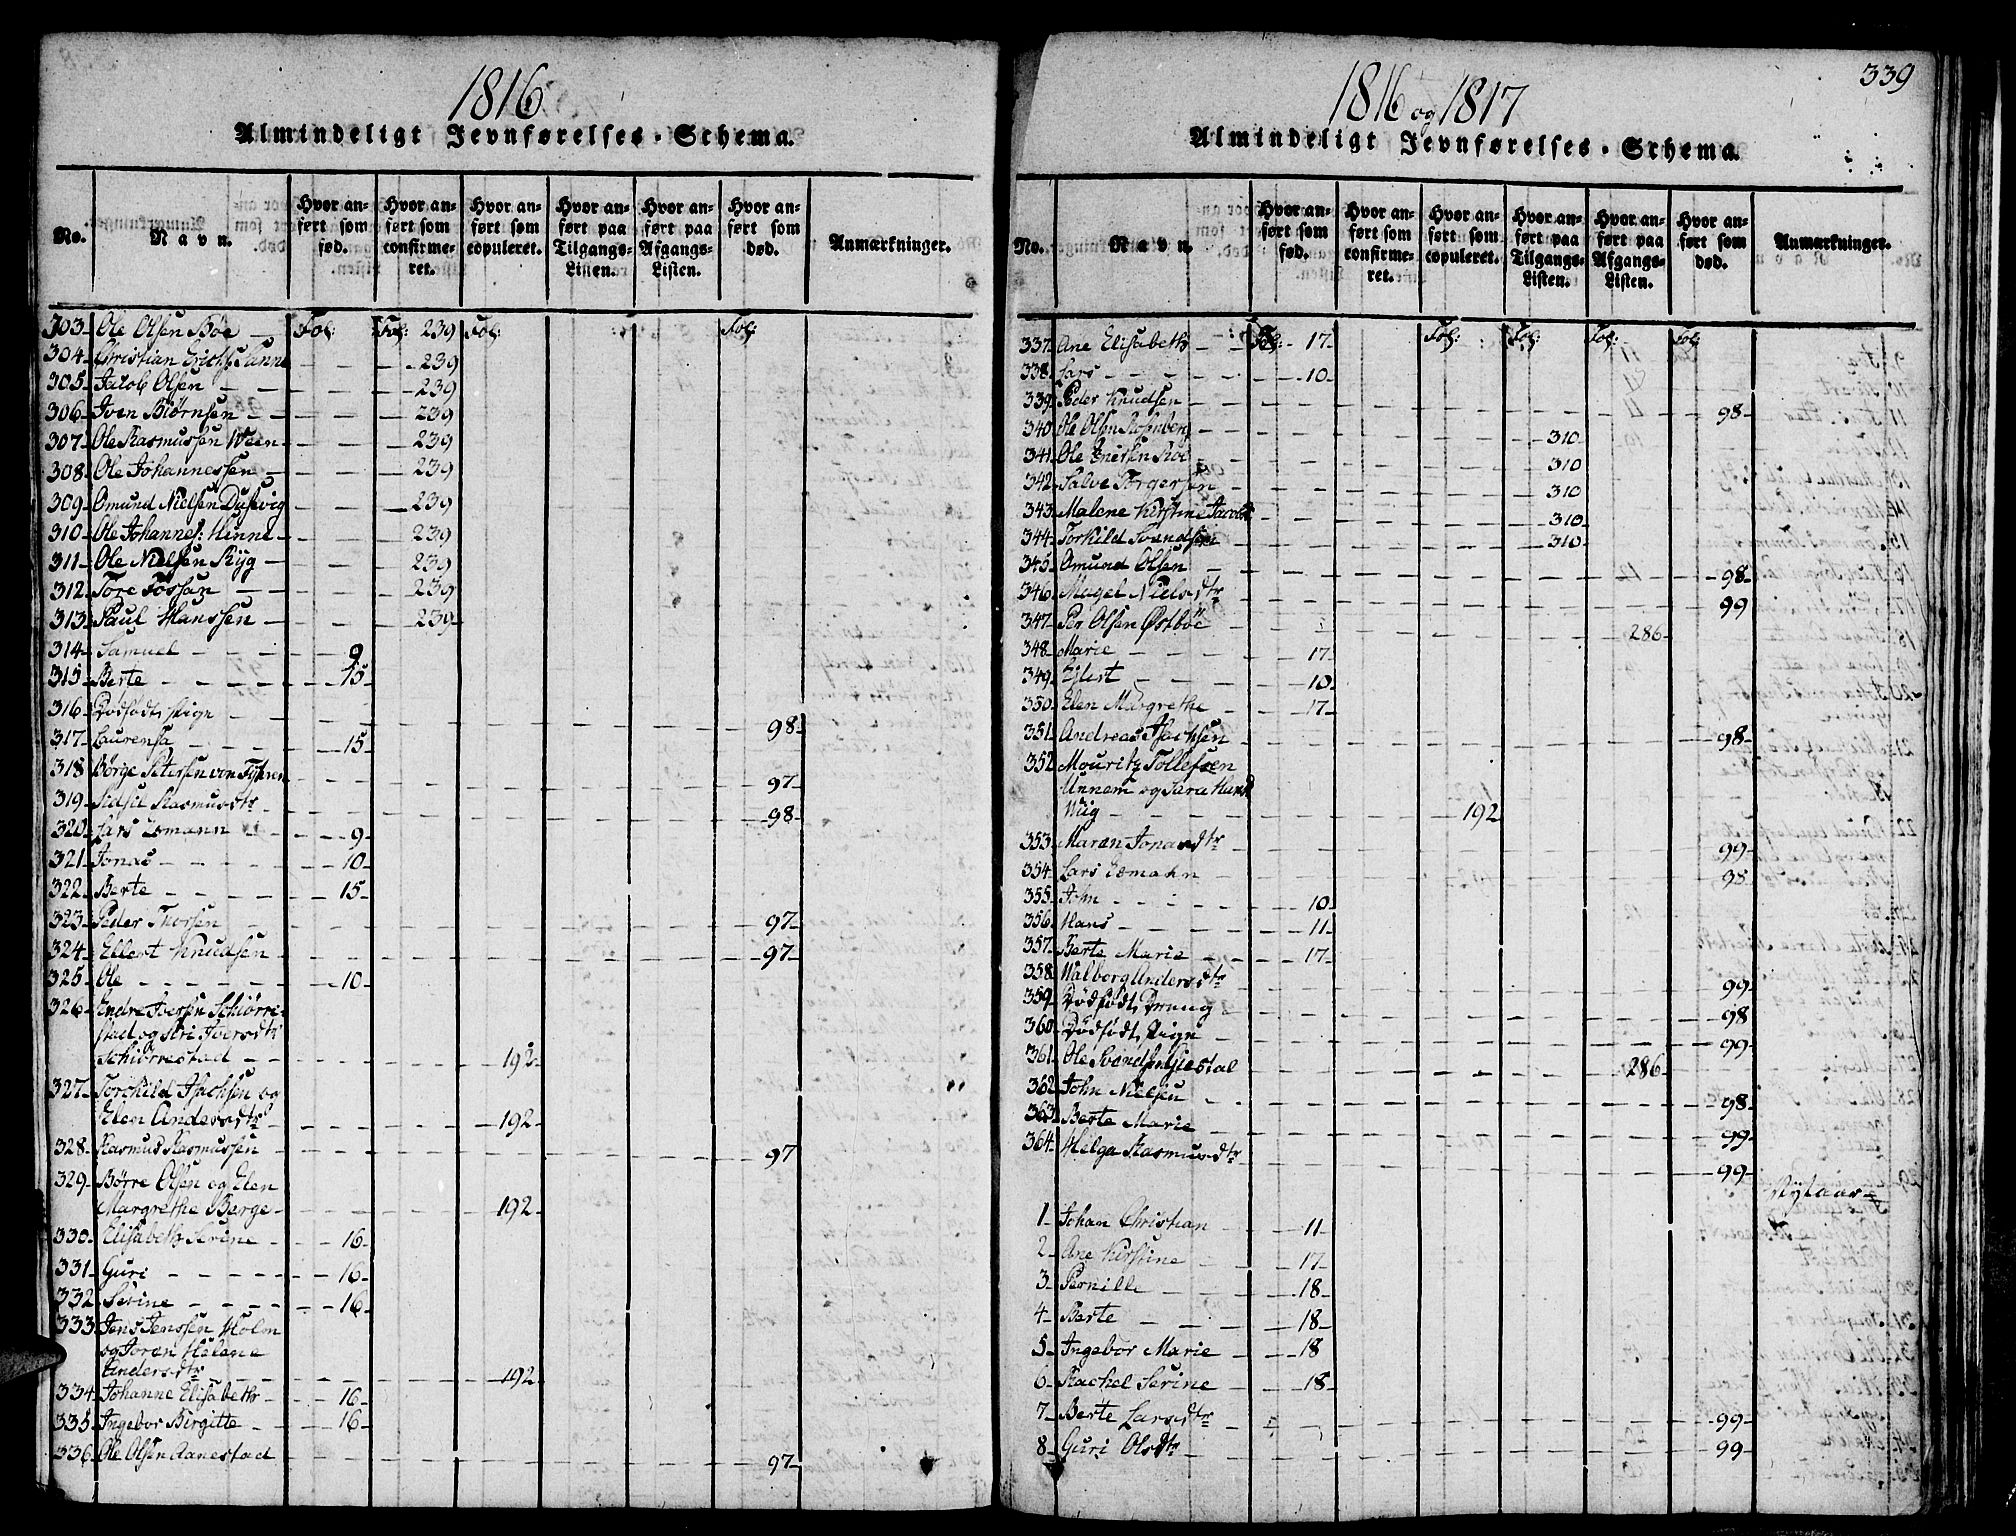 1816
Almindeligt Jevnførelses-Schema.
No.
Navn.
Hvor anført som fød.
Hvor anført som confirmeret.
Hvor anført som copuleret.
Hvor anført paa Tilgangs-Listen.
Hvor anført paa Afgangs-Listen.
Hvor anført som død.
Anmærkninger.
303 Ole Olsen Böe Fol: Fol: 239 Fol: Fol:
304 Christian Erichs: 239
305 Jacob Olsen 239
306 Iven Biörnsen 239
307 Ole Rasmussen Ween 239
308 Ole Johannessen 239
309 Omund Nielsen Dusevig 239
310 Ole Johannes: Hinne 239
311 Ole Nielsen Ryg 239
312 Tore Fossan 239
313 Paul Hanssen 239
314 Samuel 9
315 Berte 15
316 Dödfödt Pige 98
317 Laurensa 15
318 Börge Petersen von 97
319 Sidsil Rasmusdtr 98
320 Lars Esmann 9
321 Jonas 10
322 Berte 15
323 Peder Thorsen 97
324 Ellert Knudsen 97
325 Ole 10
326 Endre Iversen Schiörre-
stad og Siri Iversdtr
Schiörrestad 192
327 Torchild Isachsen og
Elen Andersdtr 192
328 Rasmus Rasmussen 97
329 Börre Olsen og Elen
Margrethe Berge 192
330 Elisabeth Serine 16
331 Guri 16
332 Serine 16
333 Jens Jenssen Holm
og Joran Helene
Andersdtr 192
334 Johanne Elisabeth 16
335 Ingebor Birgitte 16
336 Ole Olsen Aanestad 97
1816 og 1817
339
Almindeligt Jevnførelses-Schema.
No.
Navn.
Hvor anført som fød.
Hvor anført som confirmeret.
Hvor anført som copuleret.
Hvor anført paa Tilgangs-Listen.
Hvor anført paa Afgangs-Listen.
Hvor anført som død.
Anmærkninger.
337 Ane Elisabeth Fol: 17 Fol: Fol: Fol: Fol:
338 Lars 10
339 Peder Knudsen 98
340 Ole Olsen Rosenberg 310
341 Ole Roe 310
342 Salve Torgersen 310
343 Malene Kirstine Jacobs 310
344 Torkild Svendsen 310
345 Omund Olsen 98
346 Magel Nielsdtr 99
347 Per Olsen Östböe 286
348 Marie 17
349 Eilert 10
350 Elen Margrethe 17
351 Andreas Isachsen 98
352 Mouritz Tollefsen
Unnem og Sara Hansd
Wiig 192
353 Maran Jonasdtr 99
354 Lars Esmahn 98
355 John 10
356 Hans 11
357 Berte Marie 17
358 Walborg Andersdtr 99
359 Dödfödt Dreng 98
360 Dödfödt Pige 99
361 Ole Svendsen Giestal 286
362 John Nielsen 98
363 Berte Marie 99
364 Helga Rasmusdtr 99
Nytaar
1 Johan Christian 11
2 Ane Kirstine 17
3 Pernille 18
4 Berte 18
5 Ingebor Marie 18
6 Rachel Serine 18
7 Berte Larsdtr 99
8 Guri Olsdtr 99